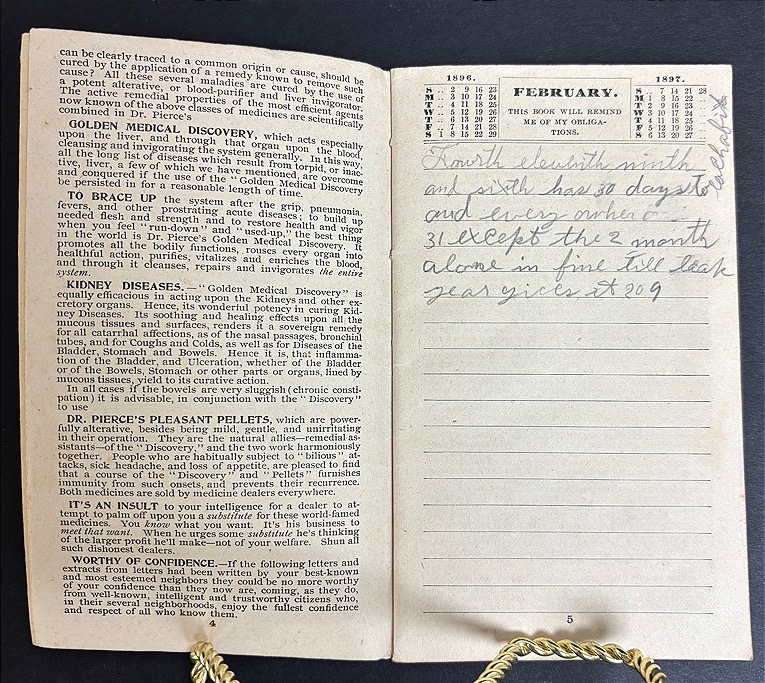 can be clearly traced to a common origin or cause, should be
cured by the application of a remedy known to remove such
cause? All these several maladies are cured by the use of
a potent alterative, or blood-purifier and liver invigorator.
The active remedial properties of the most efficient agents
now known of the above classes of medicines are scientifically
combined in Dr. Pierce's
GOLDEN MEDICAL DISCOVERY, which acts especially
upon the liver, and through that organ upon the blood,
cleansing and invigorating the system generally. In this way,
all the long list of diseases which result from torpid, or inac-
tive, liver, a few of which we have mentioned, are overcome
and conquered if the use of the "Golden Medical Discovery
be persisted in for a reasonable length of time.
TO BRACE UP the system after the grip, pneumonia,
fevers, and other prostrating acute diseases; to build up
needed flesh and strength and to restore health and vigor
when you feel "run-down" and "used-up," the best thing
in the world is Dr. Pierce's Golden Medical Discovery. It
promotes all the bodily functions, rouses every organ into
healthful action, purifies, vitalizes and enriches the blood,
and through it cleanses, repairs and invigorates the entire
system.
KIDNEY DISEASES.—"Golden Medical Discovery" is
equally efficacious in acting upon the Kidneys and other ex-
cretory organs. Hence, its wonderful potency in curing Kid-
ney Diseases. Its soothing and healing effects upon all the
mucous tissues and surfaces, renders it a sovereign remedy
for all catarrhal affections, as of the nasal passages, bronchial
tubes, and for Coughs and Colds, as well as for Diseases of the
Bladder, Stomach and Bowels. Hence it is, that inflamma-
tion of the Bladder, and Ulceration, whether of the Bladder
or of the Bowels, Stomach or other parts or organs, lined by
mucous tissues, yield to its curative action.
In all cases if the bowels are very sluggish (chronic consti-
pation) it is advisable, in conjunction with the "Discovery"
to use
DR. PIERCE'S PLEASANT PELLETS, which are power-
fully alterative, besides being mild, gentle, and unirritating
in their operation. They are the natural allies—remedial as-
sistants—of the "Discovery," and the two work harmoniously
together. People who are habitually subject to "bilious" at-
tacks, sick headache, and loss of appetite, are pleased to find
that a course of the "Discovery" and "Pellets" furnishes
immunity from such onsets, and prevents their recurrence.
Both medicines are sold by medicine dealers everywhere.
IT'S AN INSULT to your intelligence for a dealer to at-
tempt to palm off upon you a substitute for these world-famed
medicines. You know what you want. It's his business to
meet that want. When he urges some substitute he's thinking
of the larger profit he'll make—not of your welfare. Shun all
such dishonest dealers.
WORTHY OF CONFIDENCE.—If the following letters and
extracts from letters had been written by your best-known
and most esteemed neighbors they could be no more worthy
of your confidence than they now are, coming, as they do,
from well-known, intelligent and trustworthy citizens who,
in their several neighborhoods, enjoy the fullest confidence
and respect of all who know them.
4
1896.
S .. 2 9 16 23
M .. 3 10 17 24
T .. 4 11 18 25
W .. 5 12 19 26
T .. 6 13 20 27
F .. 7 14 21 28
S 1 8 15 22 29
FEBRUARY.
THIS BOOK WILL REMIND
ME OF MY OBLIGA-
TIONS.
1897.
S .. 7 14 21 28
M 1 8 15 22 ..
T 2 9 16 23 ..
W 3 10 17 24 ..
T 4 11 18 25 ..
F 5 12 19 26 ..
S 6 13 20 27 ..
Fourth eleventh ninth
and sixth has 30 days to
and every
31 except the 2 month
alone in fine till leak
year gices it 209
5